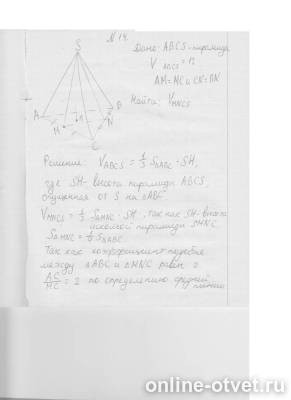 № 14.
Дано: ABCS - пирамида
V ABCS = 12
AM = MC и CN = BN
Найти: V MNCS
S
A
B
M
N
C
H
Решение: V ABCS = 1/3 S ABC · SH,
где SH - высота пирамиды ABCS,
опущенная от S на ABC
V MNCS = 1/3 S MNC · SH, так как SH - высота
искомой пирамиды SMNC
S MNC = S ABC
Так как коэффициент подобия
между ΔABC и ΔMNC равен
AC/MC = 2 по определению средней
линии
online-otvet.ru